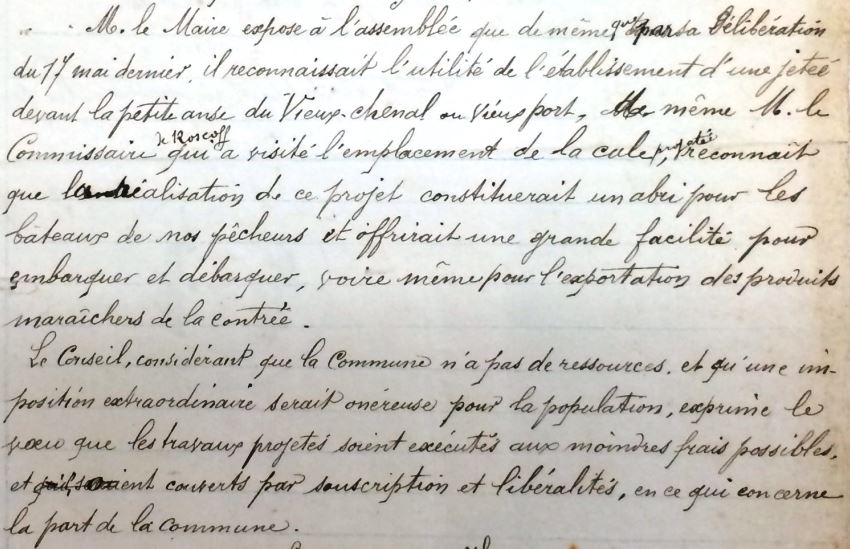 M. le Maire expose à l'assemblée que de même que par sa Délibération
du 17 mai dernier, il reconnaissait l'utilité de l'établissement d'une jeteé
devant la petite anse du Vieux-chenal ou Vieux port, de même M. le
Commissaire de Roscoff qui a visité l'emplacement de la cale projetée, reconnaît
que la réalisation de ce projet constituerait un abri pour les
bateaux de nos pêcheurs et offrirait une grande facilité pour
embarquer et débarquer, voire même pour l'exportation des produits
maraîchers de la contrée.
Le Conseil, considérant que la Commune n'a pas de ressources, et qu'une im-
position extraordinaire serait onéreuse pour la population, exprime le
vœu que les travaux projetés soient exécutés aux moindres frais possibles,
et couverts par souscription et libéralités, en ce qui concerne
la part de la commune.